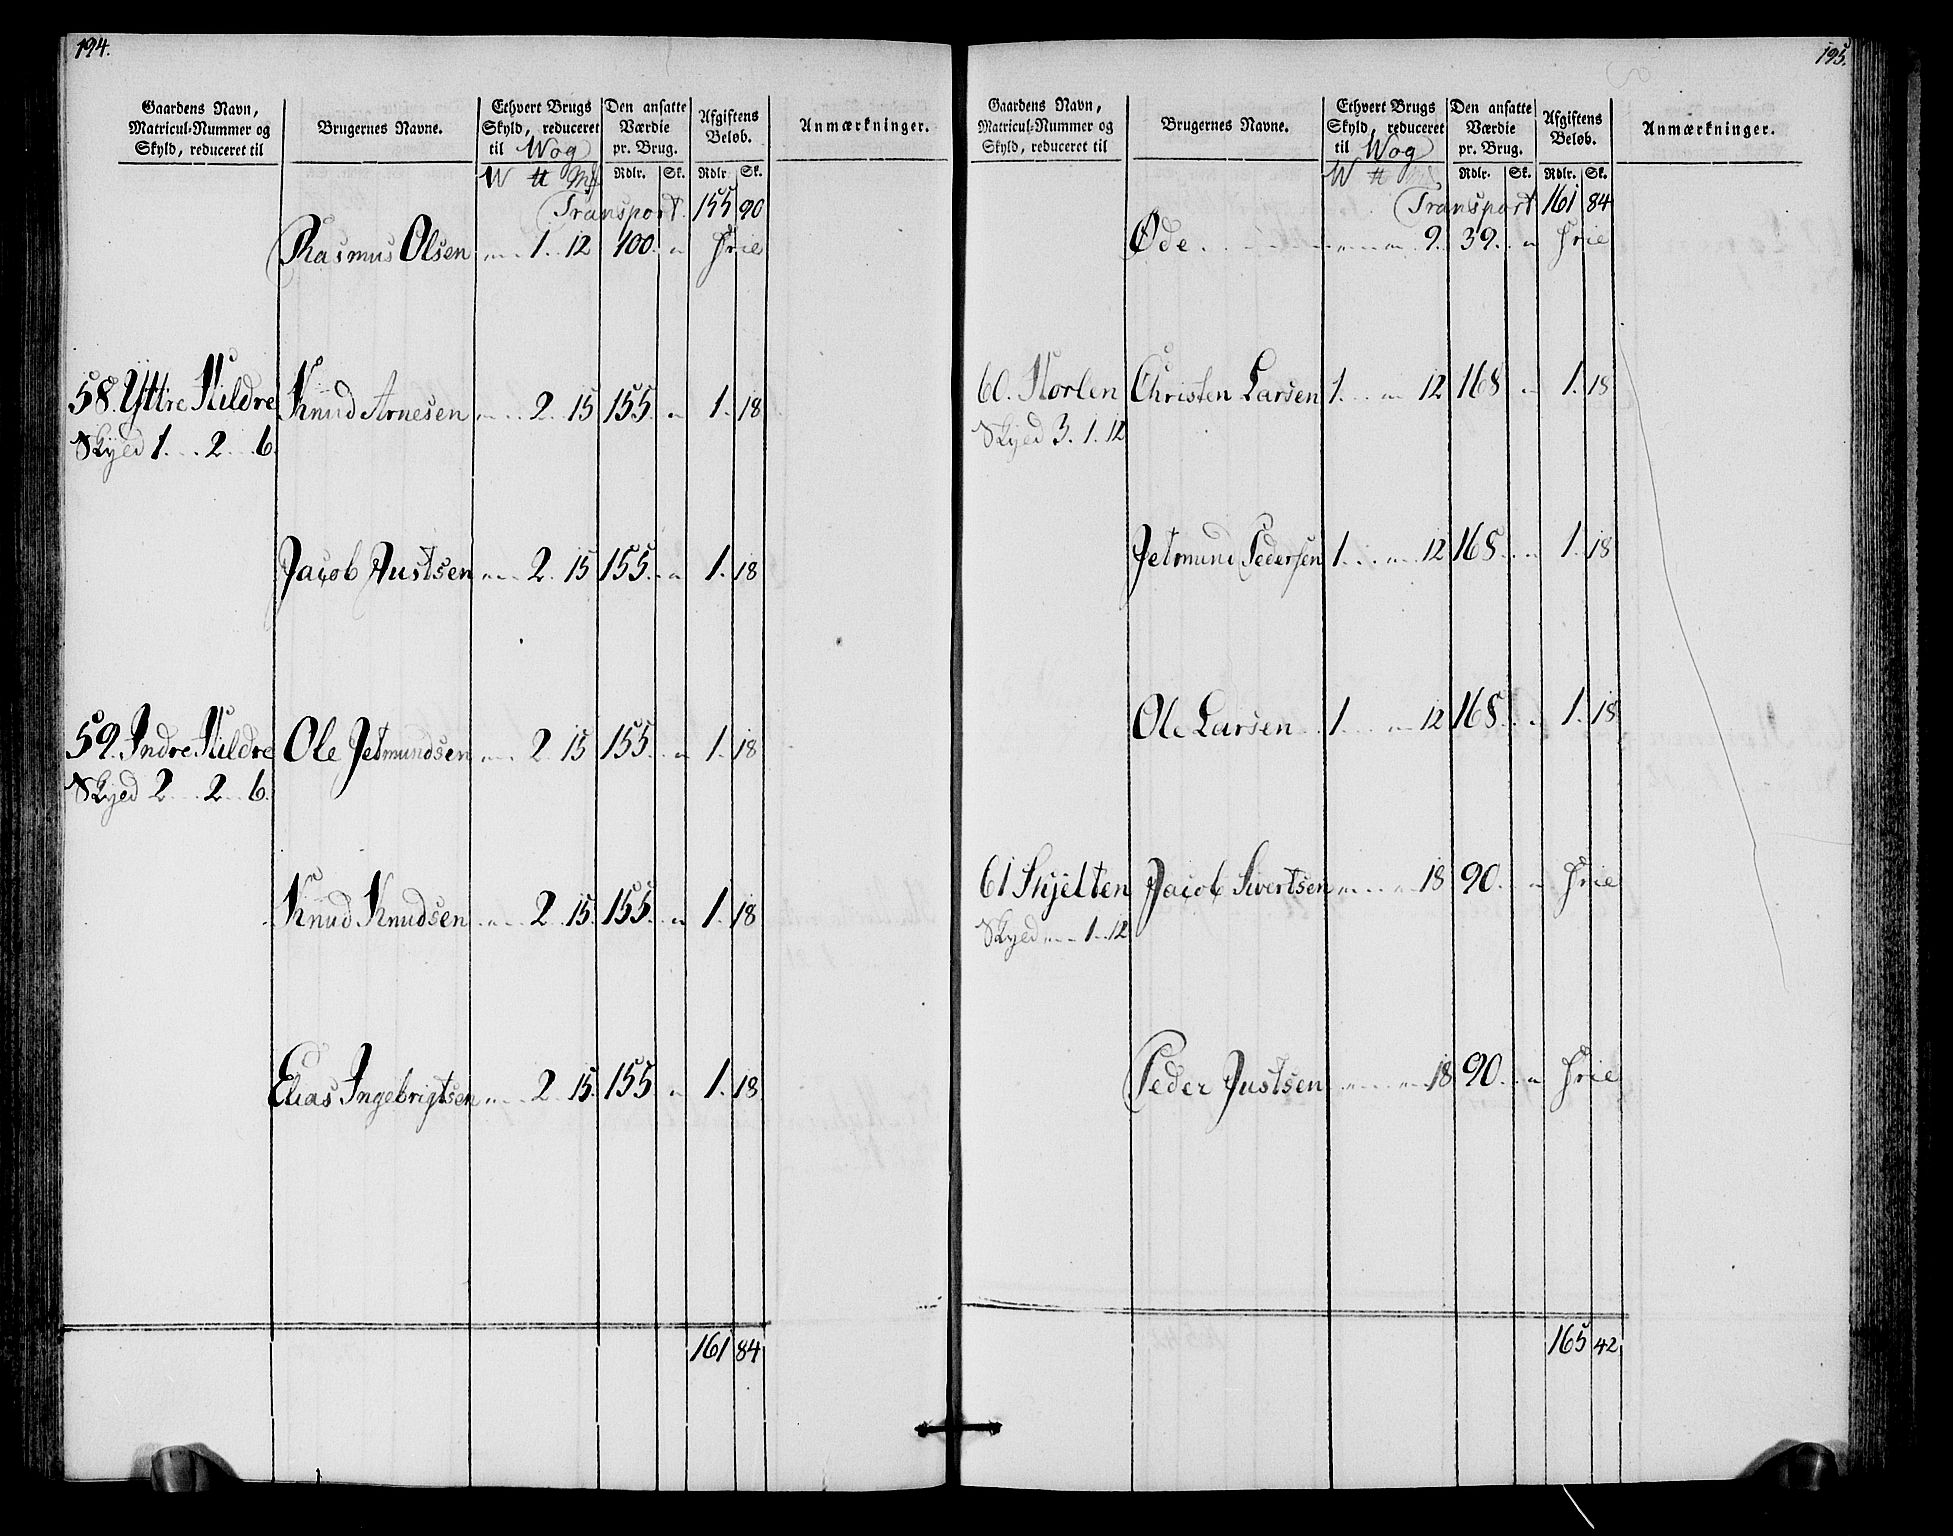 194.
Gaardens Navn, Matricul-Nummer og Skyld, reduceret til
Brugernes Navne.
Ethvert Brugs Skyld, reduceret til Wog
Den ansatte Værdie pr. Brug.
Afgiftens Beløb.
Anmærkninger.
W ℔ Mk Rdlr. Sk. Rdlr. Sk.
Transport 155 90
Rasmus Olsen „ 1. 12 100. „ frie
58. Yttre Hildre Knud Arnesen „ 2. 15 155. „ 1. 18
Skyld 1. 2. 6.
Jacob Justsen „ 2. 15 155. „ 1. 18
59. Indre Hildre Ole Jetmundsen „ 2. 15 155. „ 1. 18
Skyld 2. 2. 6.
Knud Knudsen „ 2. 15. 155. „ 1. 18
Elias Ingebrigtsen „ 2. 15. 155 „ 1. 18
161 84
195.
Gaardens Navn, Matricul-Nummer og Skyld, reduceret til
Brugernes Navne.
Ethvert Brugs Skyld, reduceret til Wog
Den ansatte Værdie pr. Brug.
Afgiftens Beløb.
Anmærkninger.
W ℔ Mk Rdlr. Sk. Rdlr. Sk.
Transport 161 84
Øde „ „ 9. 39. „ frie
60. Horlen Christen Larsen 1. „ 12 168 „ 1. 18
Skyld 3. 1. 12
Jetmund Pedersen 1. „ 12 168. „ 1. 18
Ole Larsen 1. „ 12 168. „ 1. 18
61 Skjelten Jacob Sivertsen „ „ 18 90. „ frie
Skyld „ 1. 12
Peder Justsen „ „ 18 90. „ frie
165 42